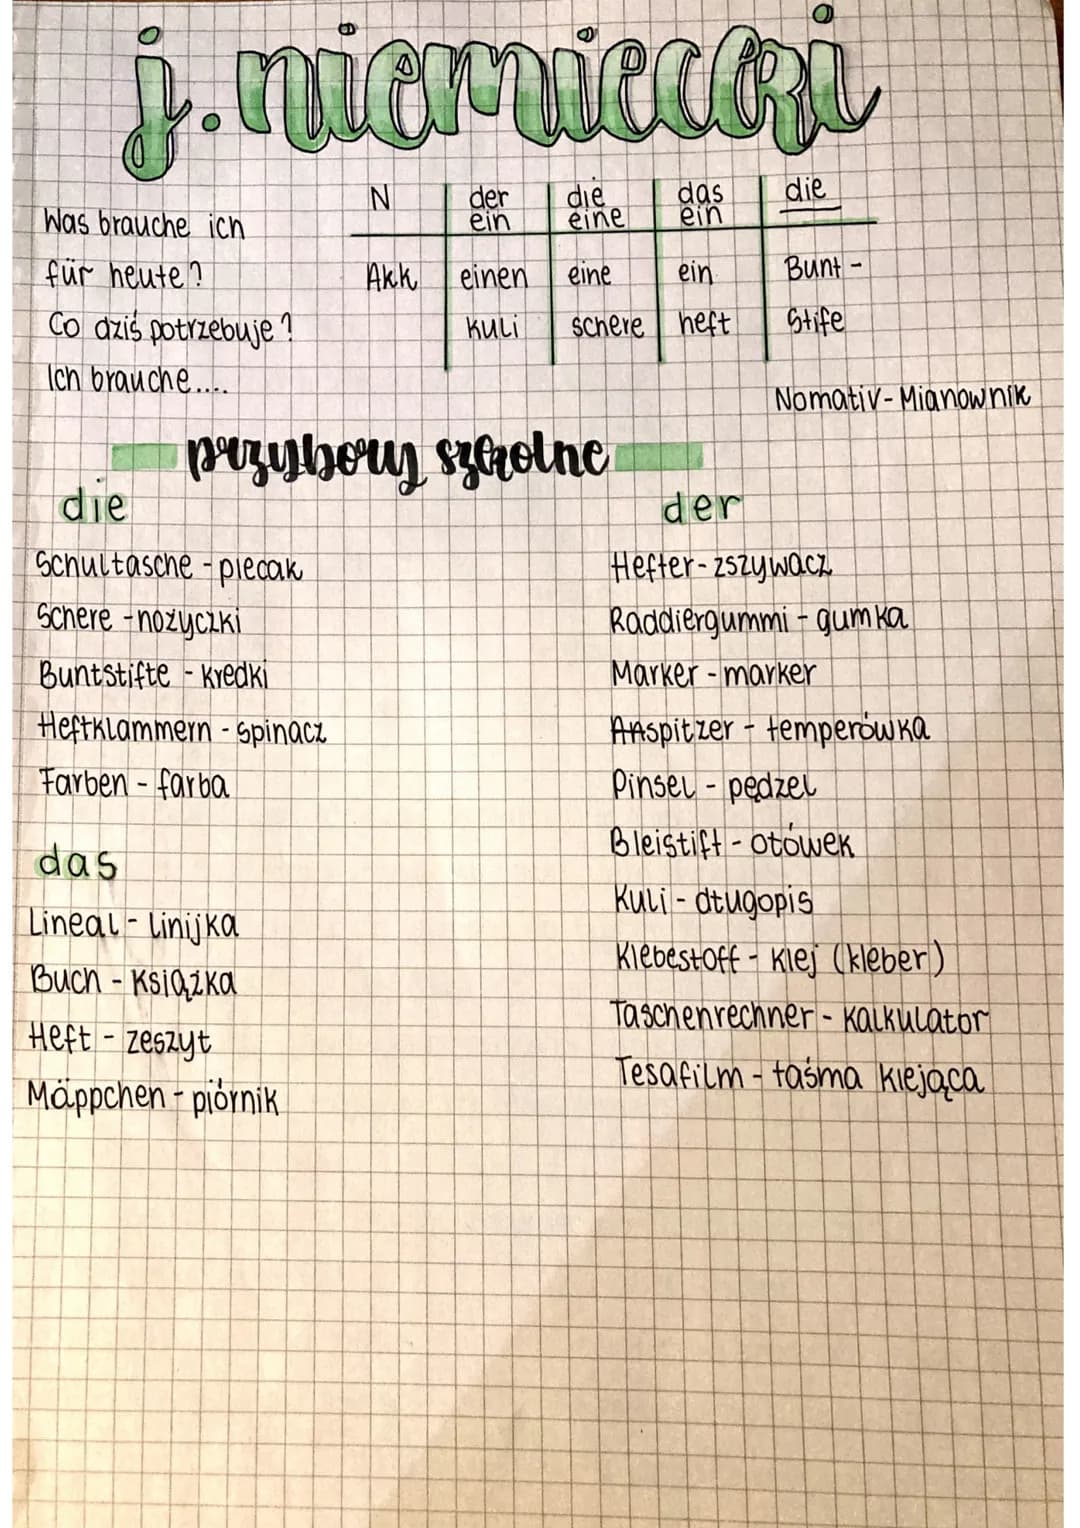 j. niemiecki
Was brauche ich
für heute?
Co dziś potrzebuje?
Ich brauche....
N der die das die
ein eine ein
Akk einen eine ein Bunt-
Kuli schere heft Stife
Nomativ-Mianownik
przybory szkolne
die
Schultasche - plecak
Schere - nożyczki
Buntstifte - kredki
Heftklammern - spinacz
Farben - farba
das
Lineal - linijka
Buch - książka
Heft - zeszyt
Mäppchen - piórnik
der
Hefter - zszywacz
Raddiergummi - gumka
Marker - marker
Anspitzer - temperówka
Pinsel - pędzel
Bleistift - ołówek
Kuli - długopis
Klebestoff - klej (kleber)
Taschenrechner - kalkulator
Tesafilm - taśma klejąca